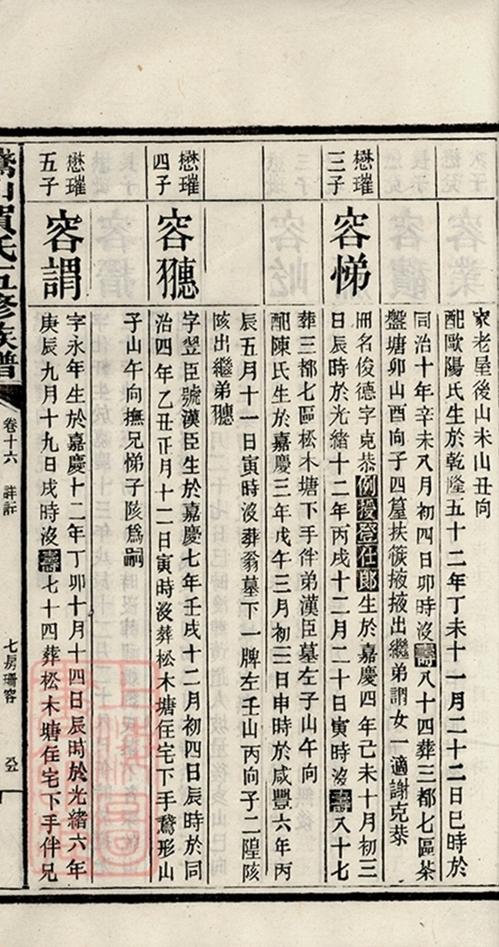 家老屋後山未山丑向
配歐陽氏生於乾隆五十二年丁未十一月二十二日巳時於
同治十年辛未八月初四日卯時沒壽八十四葬三都七區茶
盤塘卯山酉向子四簹扶篏掖掖出繼弟謂女一適謝克恭
懋璀
三子
容悌
冊名俊德字克恭例授登仕郎生於嘉慶四年己未十月初三
日辰時於光緒十二年丙戌十二月二十日寅時沒壽八十七
葬三都七區松木塘下手伴弟漢臣墓左子山午向
配陳氏生於嘉慶三年戊午三月初三日申時於咸豐六年丙
辰五月十一日寅時沒葬翁墓下一牌左壬山丙向子二隍陔
陔出繼弟聽
懋璀
四子
容聽
字翌臣號漢臣生於嘉慶七年壬戌十二月初四日辰時於同
治四年乙丑正月十二日寅時沒葬松木塘住宅下手鵞形山
子山午向撫兄悌子陔爲嗣
懋璀
五子
容謂
字永年生於嘉慶十二年丁卯十月十四日辰時於光緒六年
庚辰九月十九日戌時沒壽七十四葬松木塘住宅下手伴兄
山賀氏五修族譜
卷十六 詳註
七房珊容